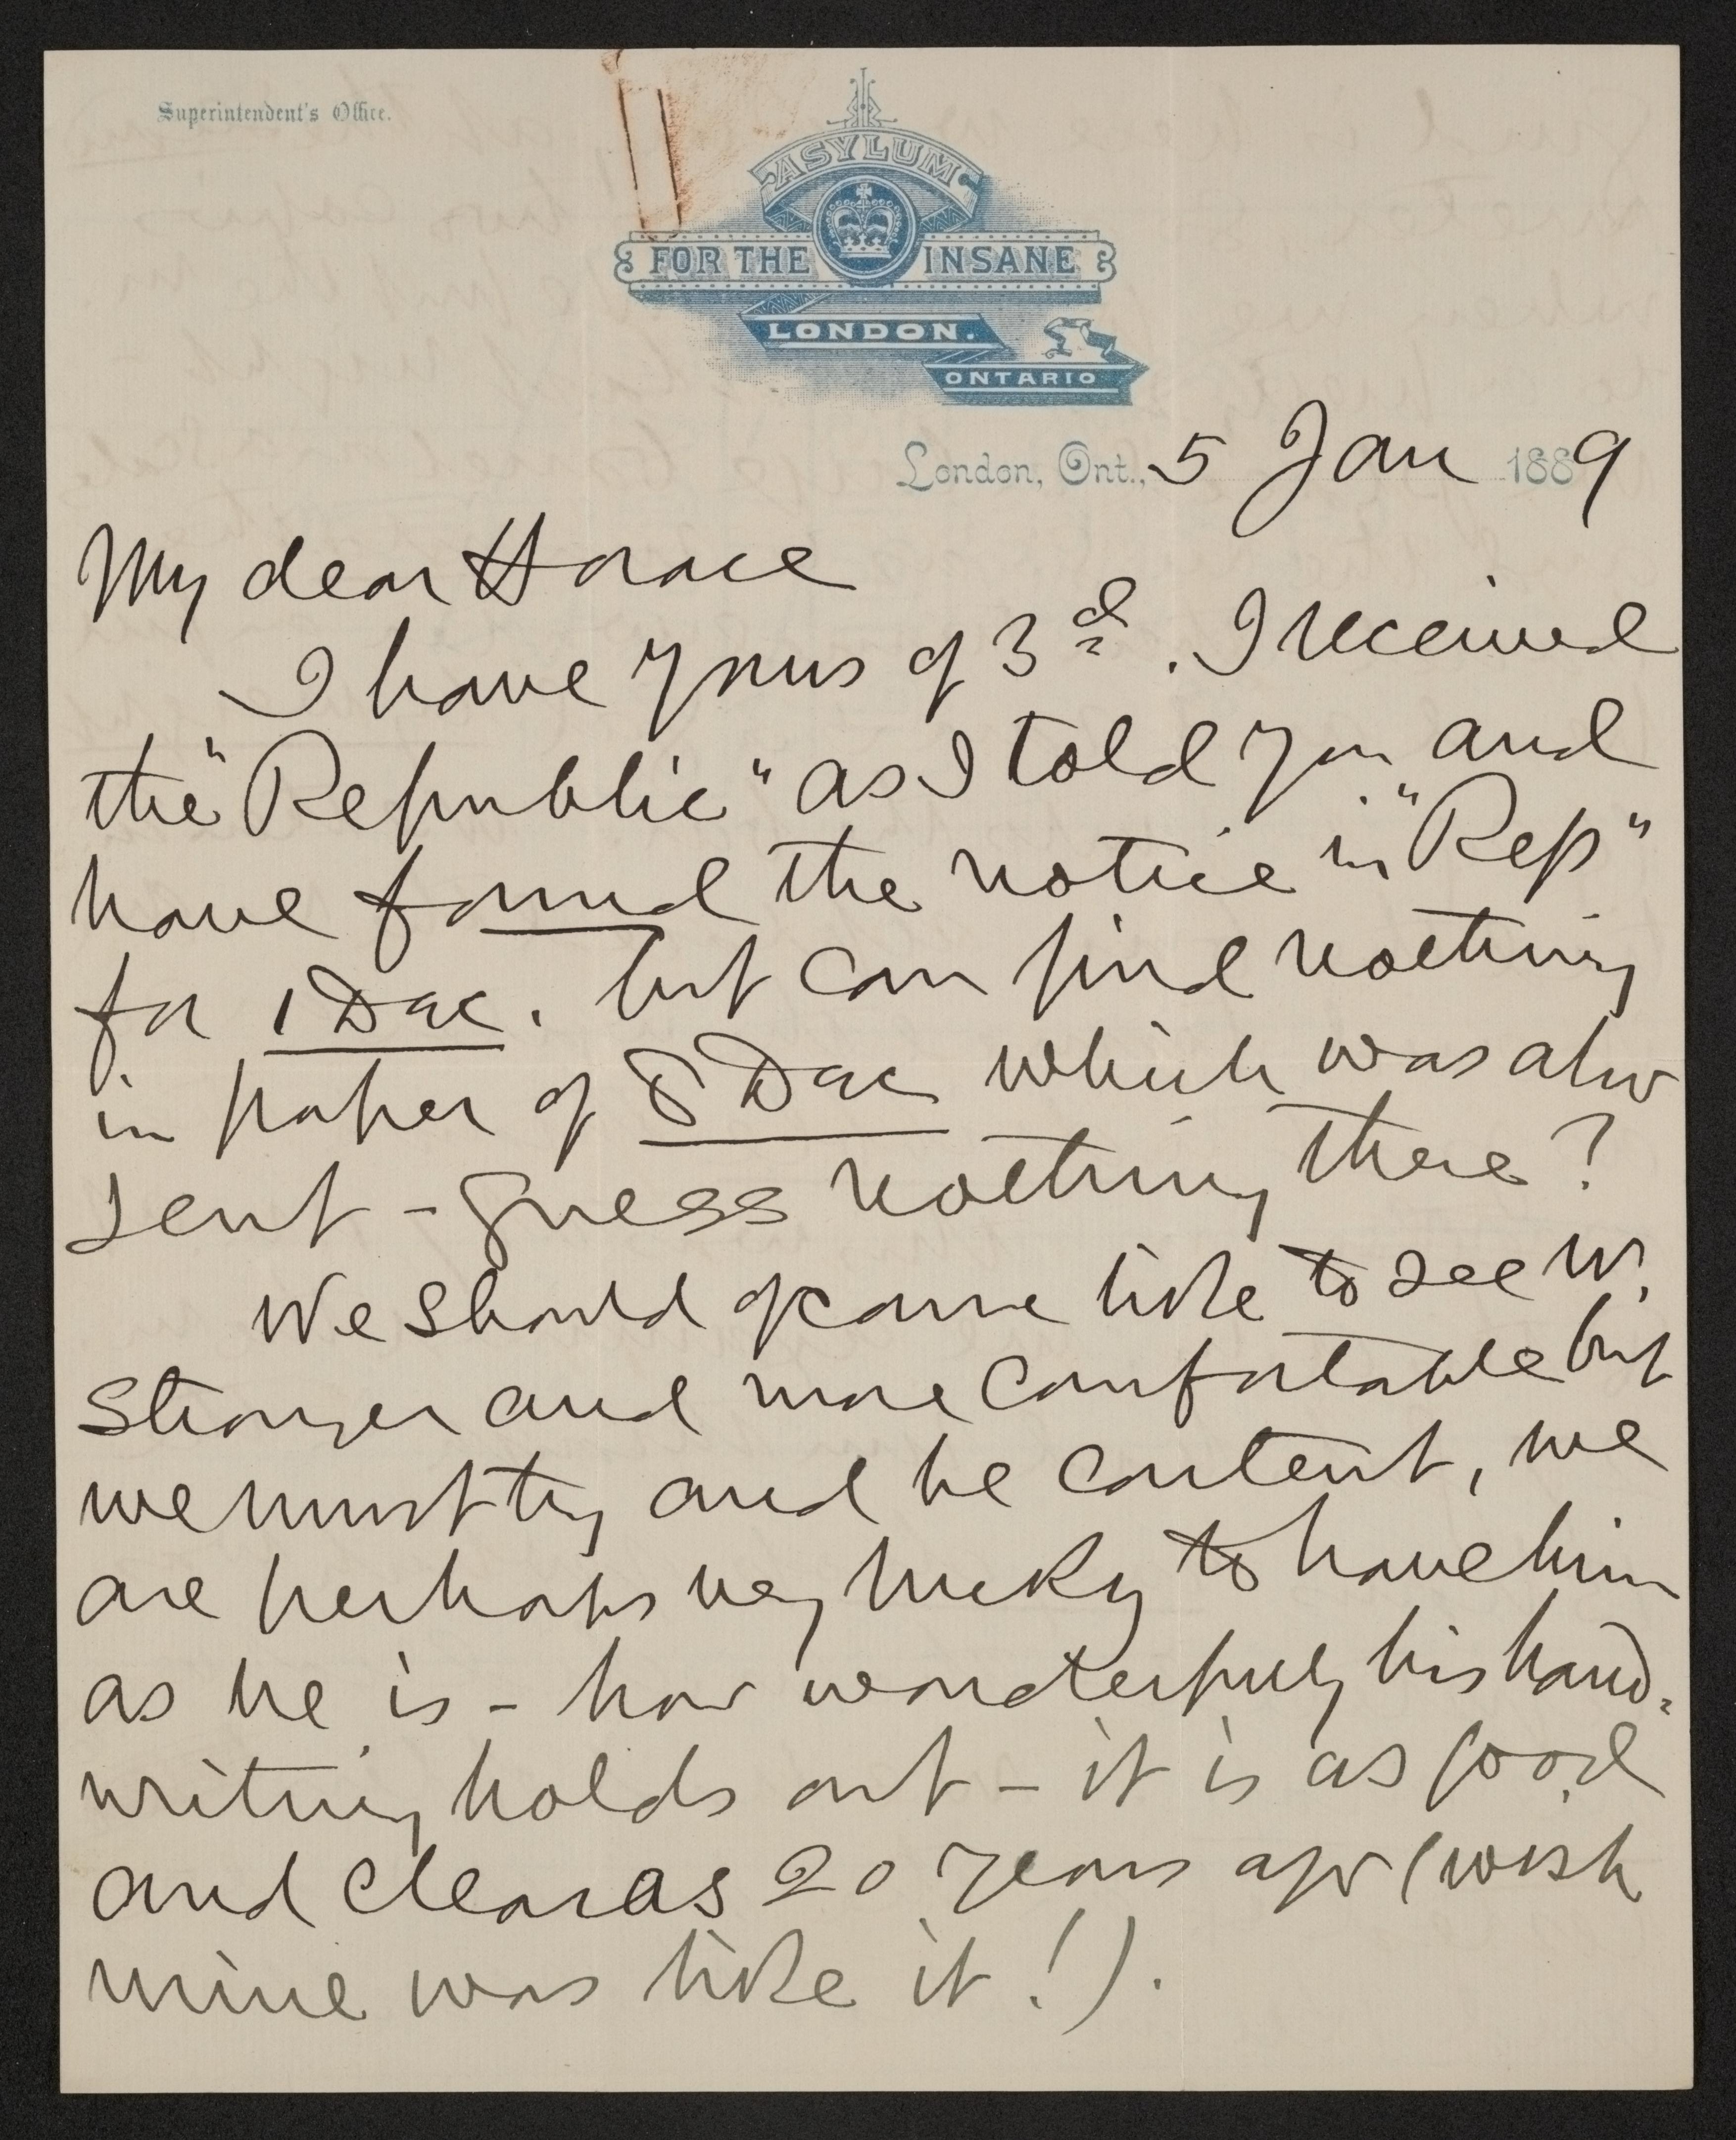 Superintendent's Office.
ASYLUM
FOR THE INSANE
LONDON.
ONTARIO
London, Ont., 5 Jan 1889
My dear Horace
I have yours of 3d. I received
the "Republic" as I told you and
have found the notice in "Rep"
for 1 Dec. but can find nothing
in paper of 8 Dec which was also
sent - guess nothing there?
We should of course like to see W.
stronger and more comfortable but
we must try and be content, we
are perhaps very lucky to have him
as he is - how wonderfully his hand-
writing holds out - it is as good
and clear as 20 years ago (wish
mine was like it!).